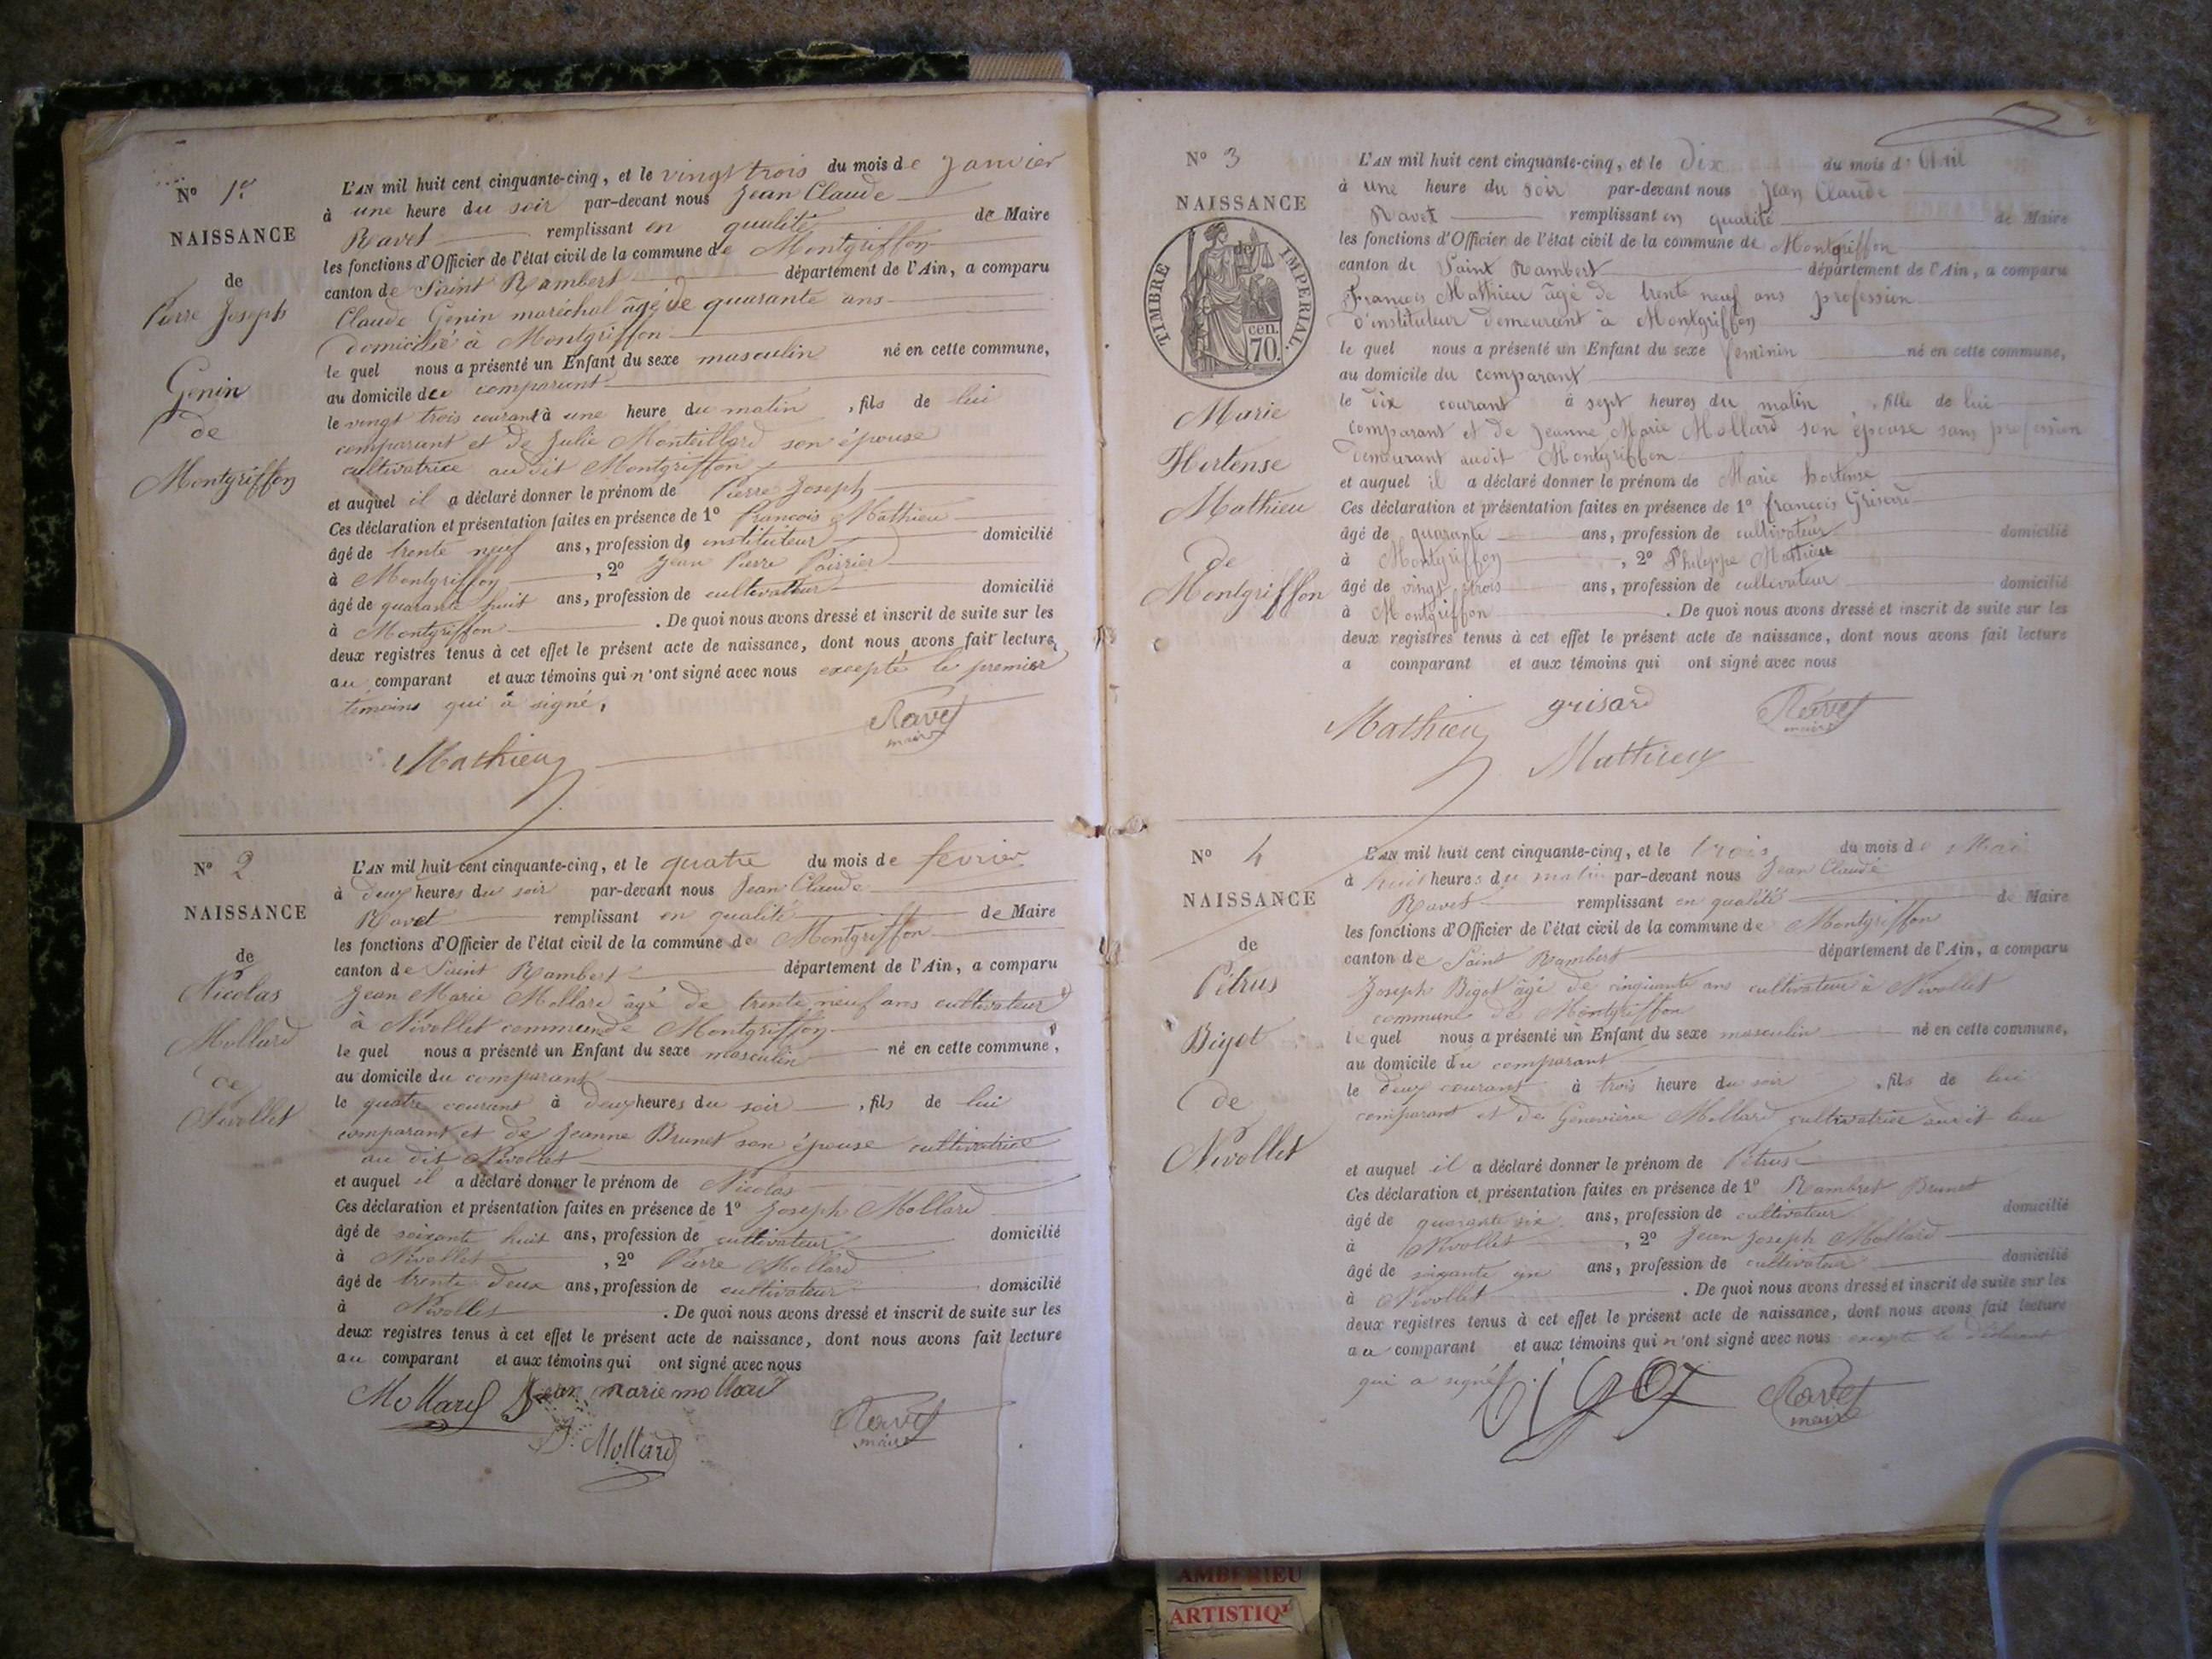 N° 1er
NAISSANCE
de
Pierre Joseph
Genin
de
Montgriffon
L'AN mil huit cent cinquante-cinq, et le vingt trois du mois de Janvier
à une heure du soir par-devant nous Jean Claude
Ravet remplissant en qualité de Maire
les fonctions d'Officier de l'état civil de la commune de Montgriffon
canton de Saint Rambert département de l'Ain, a comparu
Claude Genin maréchal âgé de quarante ans
domicilié à Montgriffon
le quel nous a présenté un Enfant du sexe masculin né en cette commune,
au domicile du comparant
le vingt trois courant à une heure du matin, fils de lui
comparant et de Julie Monteillard son épouse
cultivatrice au dit Montgriffon
et auquel il a déclaré donner le prénom de Pierre Joseph
Ces déclaration et présentation faites en présence de 1° François Mathieu
âgé de trente neuf ans, profession d' instituteur domicilié
à Montgriffon, 2° Jean Pierre Poirrier
âgé de quarante huit ans, profession de cultivateur domicilié
à Montgriffon. De quoi nous avons dressé et inscrit de suite sur les
deux registres tenus à cet effet le présent acte de naissance, dont nous avons fait lecture
au comparant et aux témoins qui n'ont signé avec nous excepté le premier
témoins qui a signé,
Ravet
maire
Mathieu
N° 2
NAISSANCE
de
Nicolas
Mollard
de
Nivollet
L'AN mil huit cent cinquante-cinq, et le quatre du mois de fevrier
à deux heures du soir par-devant nous Jean Claude
Ravet remplissant en qualité de Maire
les fonctions d'Officier de l'état civil de la commune de Montgriffon
canton de Saint Rambert département de l'Ain, a comparu
Jean Marie Mollard âgé de trente neuf ans cultivateur
à Nivollet commune de Montgriffon
le quel nous a présenté un Enfant du sexe masculin né en cette commune,
au domicile du comparant
le quatre courant à deux heures du soir, fils de lui
comparant et de Jeanne Brunet son épouse cultivatrice
au dit Nivollet
et auquel il a déclaré donner le prénom de Nicolas
Ces déclaration et présentation faites en présence de 1° Joseph Mollard
âgé de soixante huit ans, profession de cultivateur domicilié
à Nivollet, 2° Pierre Mollard
âgé de trente deux ans, profession de cultivateur domicilié
à Nivollet. De quoi nous avons dressé et inscrit de suite sur les
deux registres tenus à cet effet le présent acte de naissance, dont nous avons fait lecture
au comparant et aux témoins qui ont signé avec nous
Mollard Jean marie mollard
Ravet
maire
Mollard
N° 3
NAISSANCE
TIMBRE IMPERIAL
de
cen.
70.
Marie
Hortense
Mathieu
de
Montgriffon
L'AN mil huit cent cinquante-cinq, et le dix du mois d' Avril
à une heure du soir par-devant nous Jean Claude
Ravet remplissant en qualité de Maire
les fonctions d'Officier de l'état civil de la commune de Montgriffon
canton de Saint Rambert département de l'Ain, a comparu
François Mathieu âgé de trente neuf ans profession
d'instituteur demeurant à Montgriffon
le quel nous a présenté un Enfant du sexe feminin né en cette commune,
au domicile du comparant
le dix courant à sept heures du matin, fille de lui
comparant et de Jeanne Marie Mollard son épouse sans profession
demeurant audit Montgriffon
et auquel il a déclaré donner le prénom de Marie hortense
Ces déclaration et présentation faites en présence de 1° françois Grisard
âgé de quarante ans, profession de cultivateur domicilié
à Montgriffon, 2° Philippe Mathieu
âgé de vingt trois ans, profession de cultivateur domicilié
à Montgriffon. De quoi nous avons dressé et inscrit de suite sur les
deux registres tenus à cet effet le présent acte de naissance, dont nous avons fait lecture
a comparant et aux témoins qui ont signé avec nous
Mathieu grisard Ravet
maire
Mathieu
N° 4
NAISSANCE
de
Pétrus
Bigot
de
Nivollet
L'AN mil huit cent cinquante-cinq, et le trois du mois de Mai
à huit heures du matin par-devant nous Jean Claude
Ravet remplissant en qualité de Maire
les fonctions d'Officier de l'état civil de la commune de Montgriffon
canton de Saint Rambert département de l'Ain, a comparu
Joseph Bigot âgé de cinquante ans cultivateur à Nivollet
commune de Montgriffon
le quel nous a présenté un Enfant du sexe masculin né en cette commune,
au domicile du comparant
le deux courant à trois heure du soir, fils de lui
comparant et de Geneviève Mollard cultivatrice audit lieu
et auquel il a déclaré donner le prénom de Pétrus
Ces déclaration et présentation faites en présence de 1° Rambert Brunet
âgé de quarante six ans, profession de cultivateur domicilié
à Nivollet, 2° Jean Joseph Mollard
âgé de soixante un ans, profession de cultivateur domicilié
à Nivollet. De quoi nous avons dressé et inscrit de suite sur les
deux registres tenus à cet effet le présent acte de naissance, dont nous avons fait lecture
au comparant et aux témoins qui n'ont signé avec nous excepté le déclarant
qui a signé.
bigot Ravet
maire
AMBERIEU
ARTISTIQ